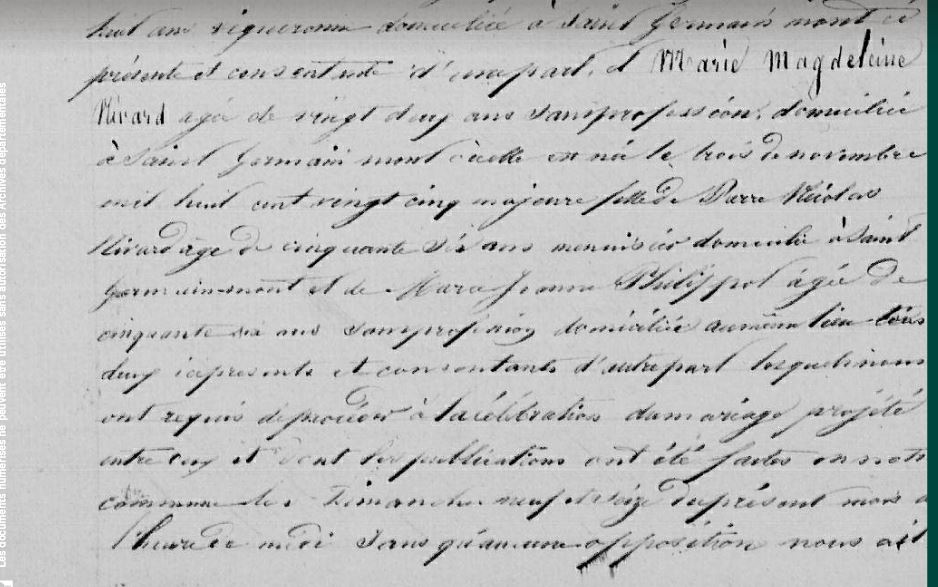 huit ans vigneronne domiciliée à Saint Germain mont ci
présente et consentente d'une part. et Marie Magdeleine
Nivard agée de vingt deux ans sans profession, domiciliée
à Saint Germain mont où elle est née le trois de novembre
mil huit cent vingt cinq majeure fille de Pierre Nicolas
Nivard âgé de cinquante six ans menuisier domicilié à Saint
Germainmont et de Marie Jeanne Philippot âgée de
cinquante six ans sans profession domiciliée au même lieu tous
deux ici présents et consentants d'autre part lesquels nous
ont requis de procéder à la célébration du mariage projété
entre eux et dont les publications ont été faites en notre
commune les Dimanches neuf et seize du présent mois à
l'heure de midi Sans qu'aucune opposition nous ait
Les documents numérisés ne peuvent être utilisés sans autorisation des Archives départementales